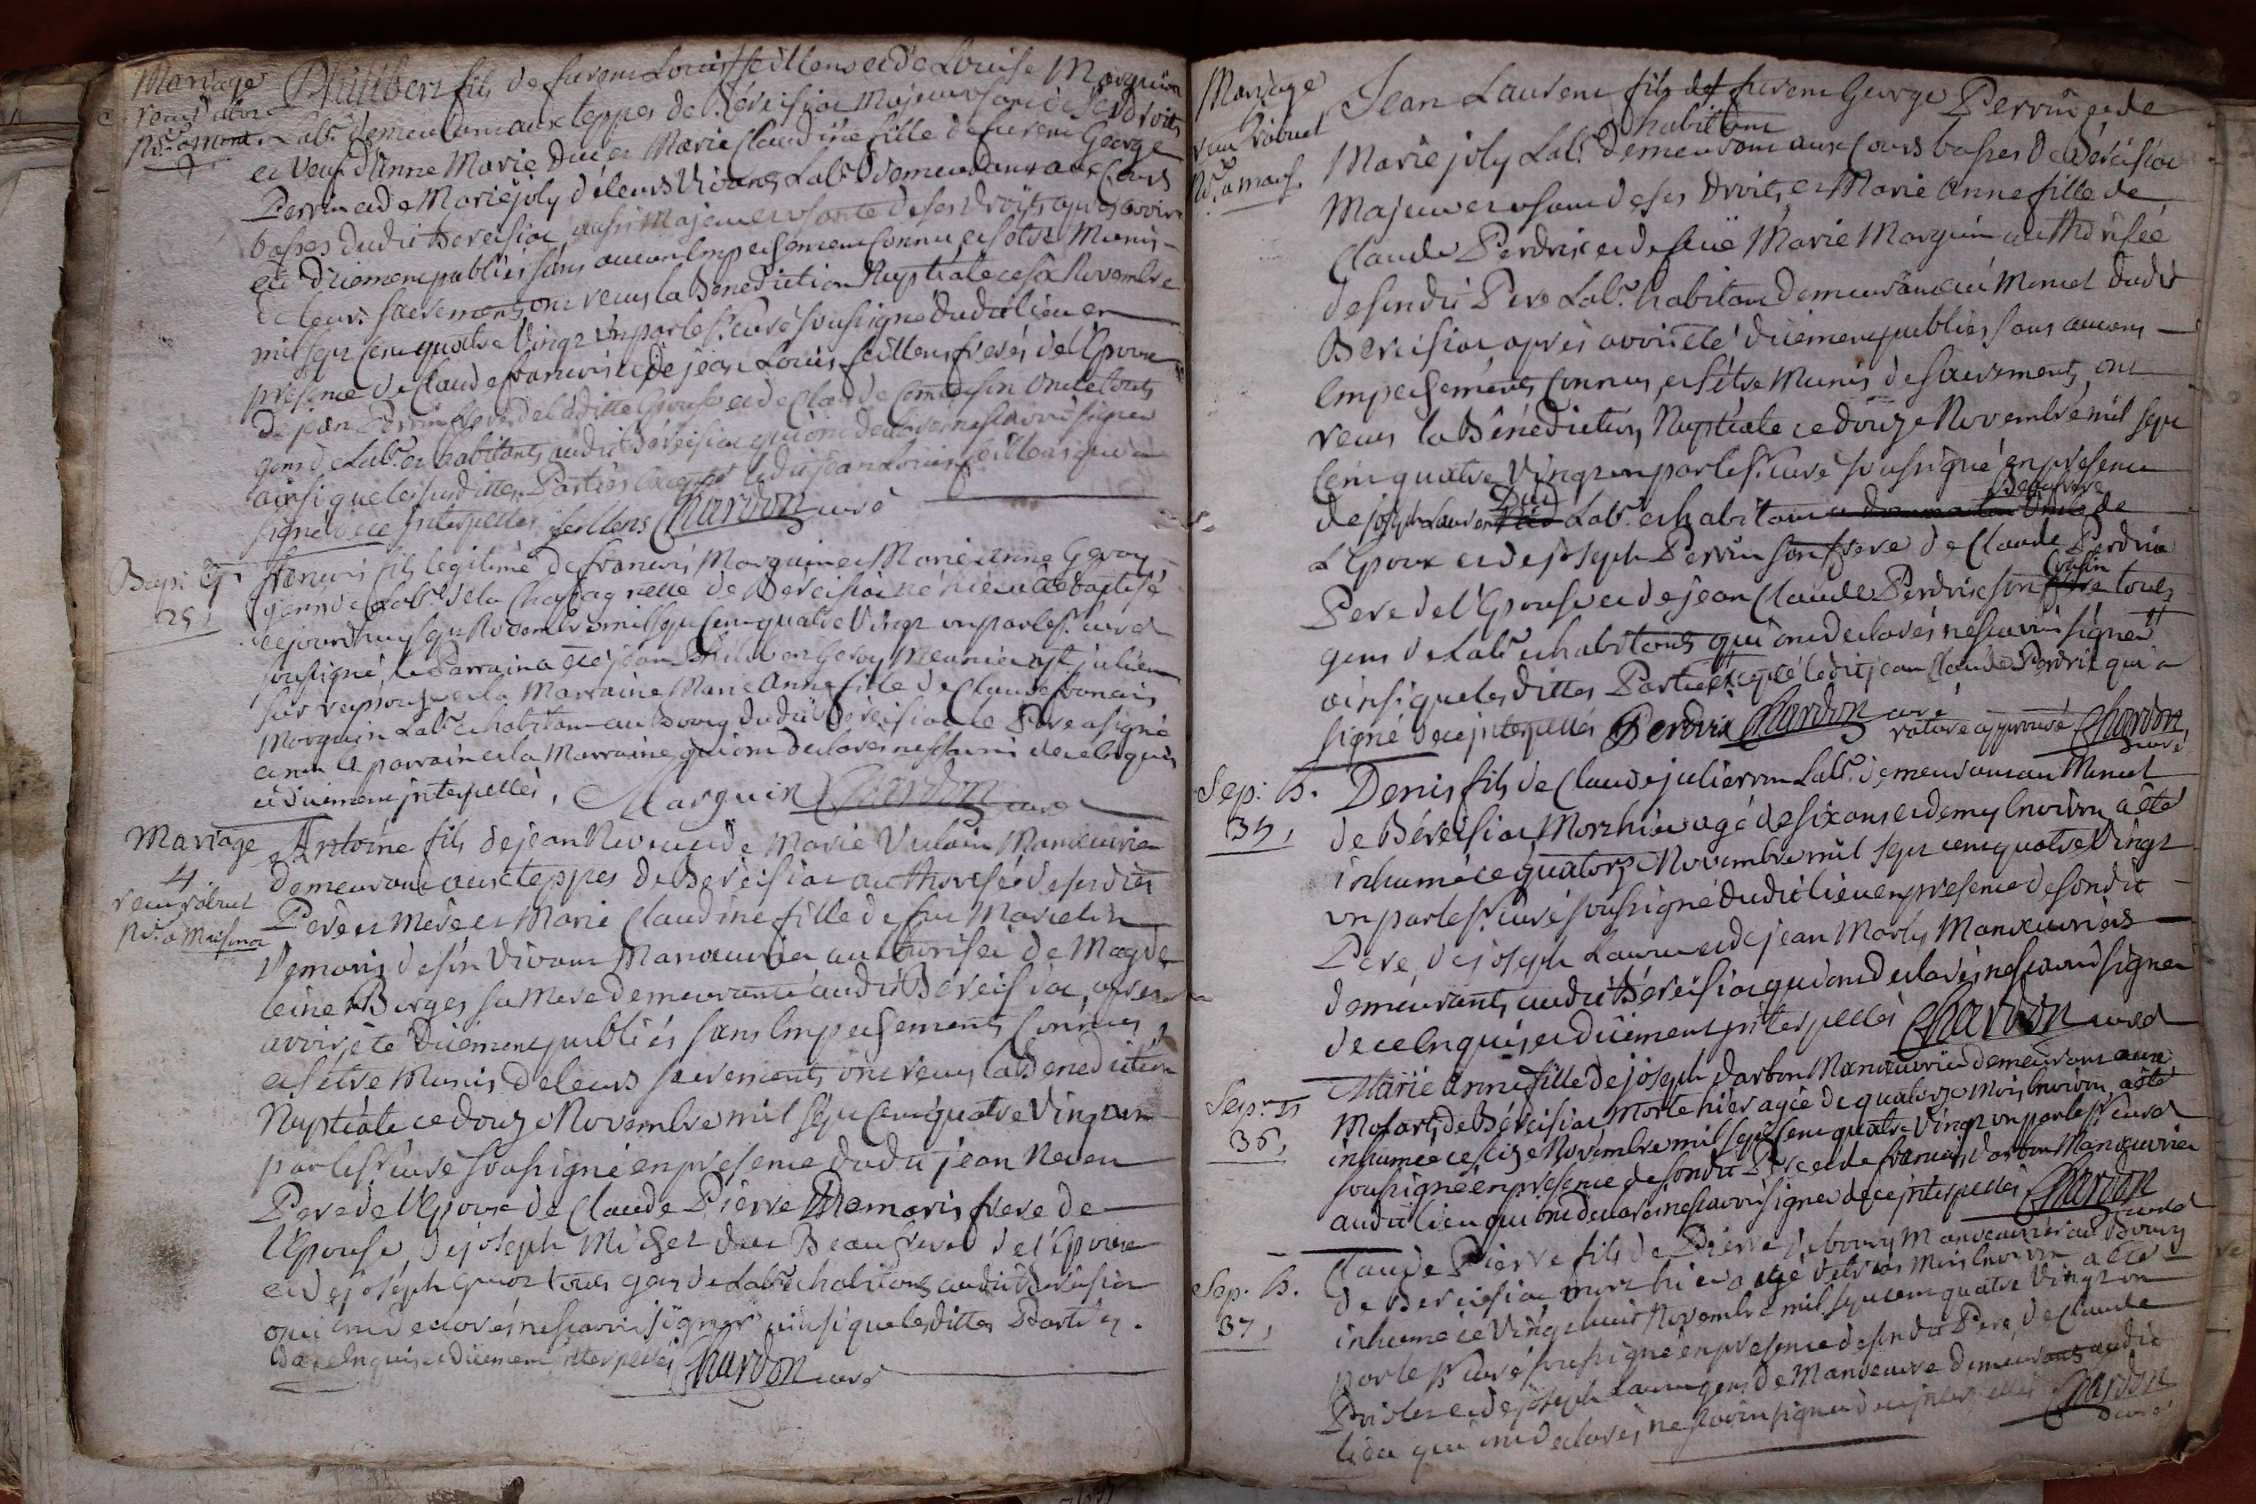 Mariage
Philibert fils de furent Louis feillens et de Louise Marguin
Lab.r demeurant aux teppes de Béreisiat Majeur usant de ses droits
et veuf d'Anne Marie Duc et Marie Claudine fille de furent George
Perrin et de Marie joly de leurs Vivants Lab.rs demeurants aux Cours
basses dudit Bereisiat aussi Majeure usante de ses droits après avoir
été düement publiés sans aucun Empechement connu et s'être Munis
de leurs sacrements ont reçus la Benediction Nuptiale ce six Novembre
mil sept cent quatre Vingt un par le Sr. curé soussigné dudit lieu en
presence de Claude francois et de jean Louis feillens freres de l'Epoux
de jean Perrin frere de laditte Epouse et de Claude
gens de Lab.r et habitants audit Béreisiat qui ont declarés ne scavoir signer
ainsi que les susdittes Parties excepté ledit jean Louis feillens qui a
signé de ce Interpellés feillens Chardon curé
Bap: G.
25,
francois fils legitime de francois Marguin et Marie Anne Geroy
gens de Lab.r de la Chassagnette de Béreisiat né hier a été baptisé
cejourd'huy sept Novembre mil sept cent quatre Vingt un par le Sr. curé
soussigné, le Parrain a été jean Philibert Geroy Meunier a St julien
sur reyssouze et la Marraine Marie Anne fille de Claude francois
Marguin Lab.r et habitant au Bourg dudit Béreisiat le Pere a signé
et non le parrain et la Marraine qui ont declarés ne scavoir de ce enquis
et düement interpellés, Marguin Chardon curé
Mariage
4
Antoine fils de jean Neveu et de Marie Vulain Manœuvrier
demeurant aux teppes de Béreisiat authorisé de sesdits
Père et Mère et Marie Claudine fille de fu Marcelin
Demaris de son Vivant Manœuvrier authorisée de Magde
leine Borges sa Mere demeurante audit Béreisiat, après
avoir été düement publiés sans Empechements Connus,
et s'etre Munis de leurs sacrements ont reçus la Benediction
Nuptiale ce douze Novembre mil sept cent quatre Vingt un
par le Sr curé soussigné en presence dudit jean Neveu
Pere de l'Epoux de Claude Pierre Demaris frere de
l'Epouse, de joseph Michel Duc Beaufrere de l'Epoux
et de joseph tous gens de Lab.r et habitants audit Béreisiat
qui ont declarés ne scavoir signer ainsi que lesdittes Parties.
de ce enquis et düement interpellés Chardon curé
Mariage
Jean Laurent fils de furent George Perrin et de
Marie joly Lab.r demeurant habitant aux Cours basses de Béreisiat
Majeur et usant de ses Droits, et Marie Anne fille de
Claude Perdrix et de feüe Marie Marguin authorisée
de sondit Pere Lab.r habitant demeurant au Moncel dudit
Bereisiat après avoir été düement publiés sans aucuns
Empechements Connus, et s'être Munis de sacrements, ont
reçus la Bénédiction Nuptiale ce douze Novembre mil sept
Cent quatre Vingt un par le Sr. Curé soussigné en presence
de joseph Laurent Duc Lab.r et habitant Beaufrere de
L'Epoux et de joseph Perrin son frere de Claude Perdrix
Pere de l'Epouse et de jean Claude Perdrix son Cousin tous
gens de Lab.r et habitants qui ont declarés ne scavoir signer
ainsi que lesdittes Parties excepté ledit jean Claude Perdrix qui a
signé de ce interpellés Perdrix Chardon curé
rature approuvé Chardon curé
Sep: G.
35,
Denis fils de Claude julieron Lab.r demeurant au Moncel
de Béreisiat Mort hier agé de six ans et demy Environ a été
inhumé ce quatorze Novembre mil sept cent quatre Vingt
un par le Sr. curé soussigné dudit lieu en presence de sondit
Pere, de joseph Laurent et de jean Marly Manœuvriers
demeurants audit Béreisiat qui ont declarés ne scavoir signer
de ce Enquis et düement interpellés Chardon curé
Sep:
36,
Marie Anne fille de joseph darbon Manœuvrier demeurant aux
Molards de Béreisiat Morte hier agée de quatorze Mois Environ a été
inhumée ce seize Novembre mil sept cent quatre Vingt un par le Sr curé
soussigné en presence de sondit Pere et de francois darbon Manœuvrier
audit lieu qui ont declarés ne scavoir signer de ce interpellés Chardon curé
Sep. G.
37,
Claude Pierre fils de Pierre debourg Manœuvrier au Bourg
de Bereisiat mort hier agé de trois Mois Environ a été
inhumé ce Vingt huit Novembre mil sept cent quatre Vingt un
par le Sr curé soussigné en presence de sondit Pere, de Claude
et de joseph Laurent gens de Manœuvre demeurants audit
lieu qui ont declarés ne scavoir signer de ce interpellés Chardon
curé